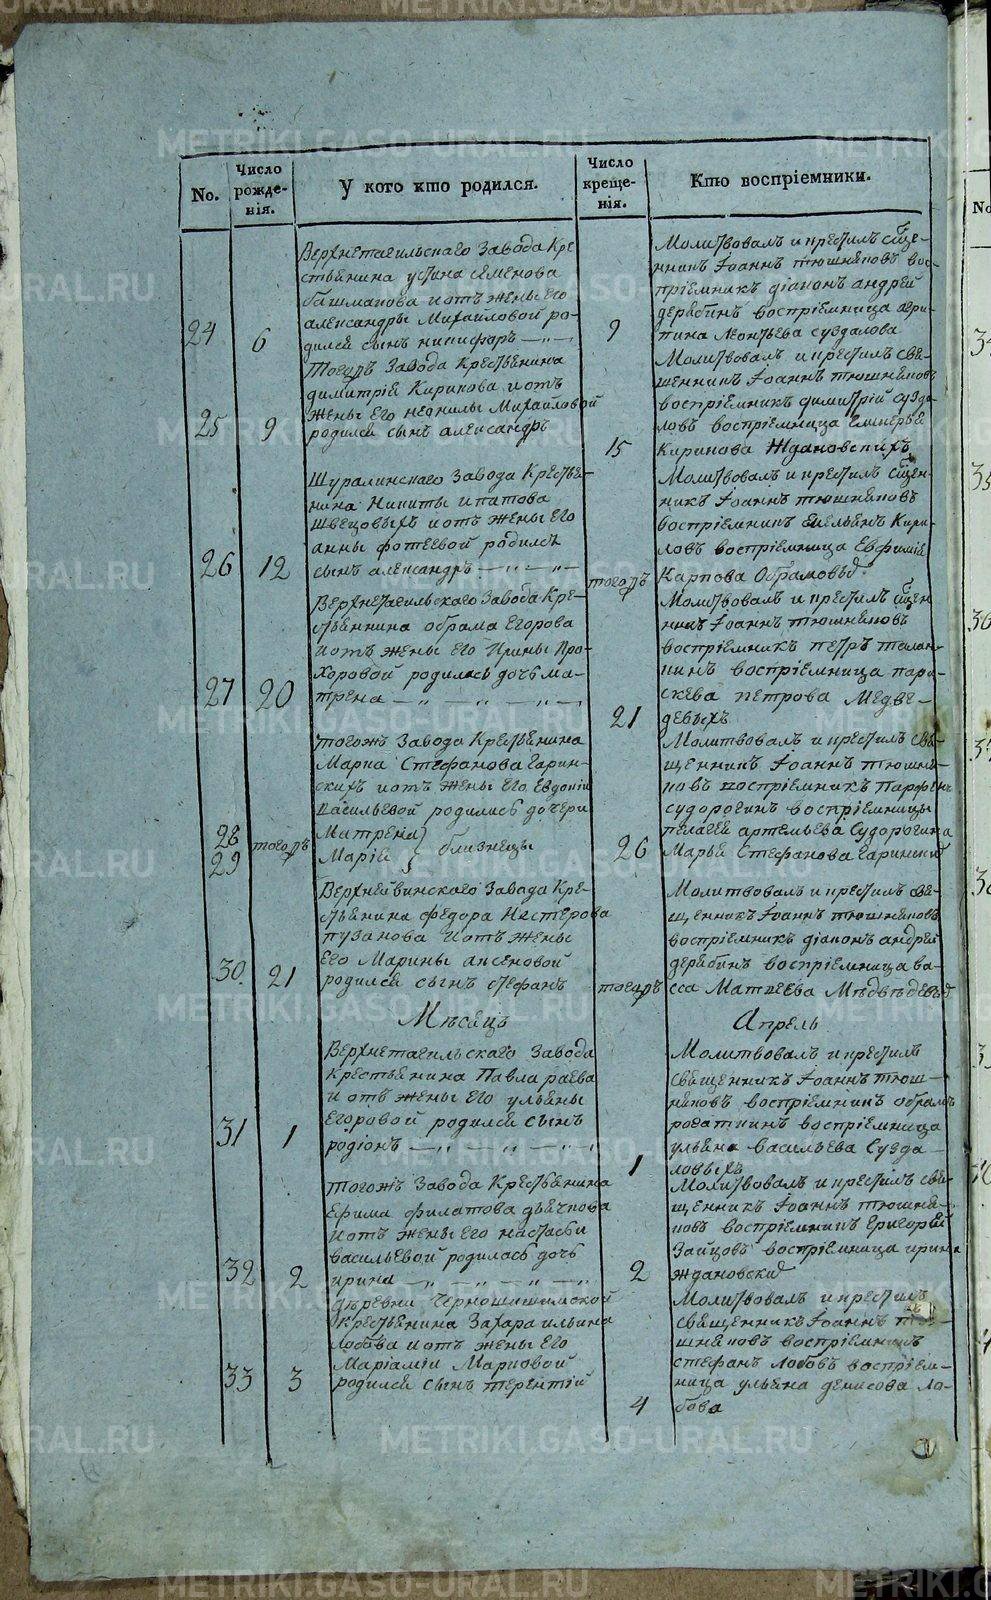 No.
Число рожде-нія.
У кого кто родился.
Число креще-нія.
Кто воспріемники.
24
6
Верхнетагильскаго Завода Кре-
стьянина устина семенова
башмакова и отъ жены его
александры Михайловой ро-
дился сынъ никифоръ
9
Молитвовалъ и крестилъ свще-
нникъ Іоаннъ тюшняковъ вос-
пріемникъ діаконъ андрей
дерябинъ воспріемница акри-
пина Леонтьева суздалова
25
9
Тогожъ Завода Крестьянина
димитрія Кирикова и отъ
жены Его неонилы Михайловой
родился сынъ александръ
15
Молитвовалъ и крестилъ свя-
щенникъ Іоаннъ тюшняковъ
воспріемникъ димитрій сузда-
ловъ воспріемница
Кирикова Ждановскихъ
26
12
Шуралинскаго Завода Крестья-
нина Никиты ипатова
швецовыхъ и отъ жены Его
анны фотеевой родился
сынъ александръ
тогожъ
Молитвовалъ и крестилъ свщен-
никъ Іоаннъ тюшняковъ
воспріемникъ Емельянъ Кири-
ловъ воспріемница Евфимія
Карпова
27
20
Верхнетагильскаго Завода Кре-
стьянина обрама Егорова
и отъ жены Его Ирины Про-
хоровой родилась дочь ма-
трена
21
Молитвовалъ и крестилъ свщен
никъ Іоаннъ тюшняковъ
воспріемникъ петръ талан-
кинъ воспріемница пара-
скева петрова Медве-
девыхъ
28
29
тогожъ
тогожъ Завода Крестьянина
Марка Стефанова Гарин-
скихъ и отъ жены Его Евдокіи
Васильевой родились дочери
Матрена
Марія } близнецы
26
Молитвовалъ и крестилъ свя-
щенникъ Іоаннъ тюшня-
ковъ воспріемникъ Парфенъ
судорогинъ воспріемницы
пелагея артемьева Судорогина
Марья Стефанова Гаринскихъ
30.
21
Верхнейвинскаго Завода Кре-
стьянина федора Нестерова
пузанова и отъ жены
Его Марины аксеновой
родился сынъ стефанъ
тогожъ
Молитвовалъ и крестилъ свя-
щенникъ Іоаннъ тюшняковъ
воспріемникъ діаконъ андрей
дерябинъ воспріемница ва-
сса Матвеева
Мѣсяцъ
Апрель
31
1
Верхнетагильскаго Завода
Крестьянина Павла раева
и отъ жены Его ульяны
Егоровой родился сынъ
родіонъ
1
Молитвовалъ и крестилъ
священникъ Іоаннъ тюш-
няковъ воспріемникъ обрамъ
рогаткинъ воспріемница
ульяна васильева Сузда-
ловыхъ
32
2
тогожъ Завода Крестьянина
Ефима филатова дьячкова
и отъ жены Его настасьи
васильевой родилась дочь
ирина
2
Молитвовалъ и крестилъ свя-
щенникъ Іоаннъ тюшня-
ковъ воспріемникъ Григорей
Зайцовъ воспріемница ирина
ждановскихъ
33
3
деревни Черношишимской
крестьянина Захара ильина
лобова и отъ жены его
Маріаміи Марковой
родился сынъ терентій
4
Молитвовалъ и крестилъ
священникъ Іоаннъ тю-
шняковъ воспріемникъ
стефанъ лобовъ воспріем-
ница ульяна денисова ло-
бова
METRIKI.GASO-URAL.RU